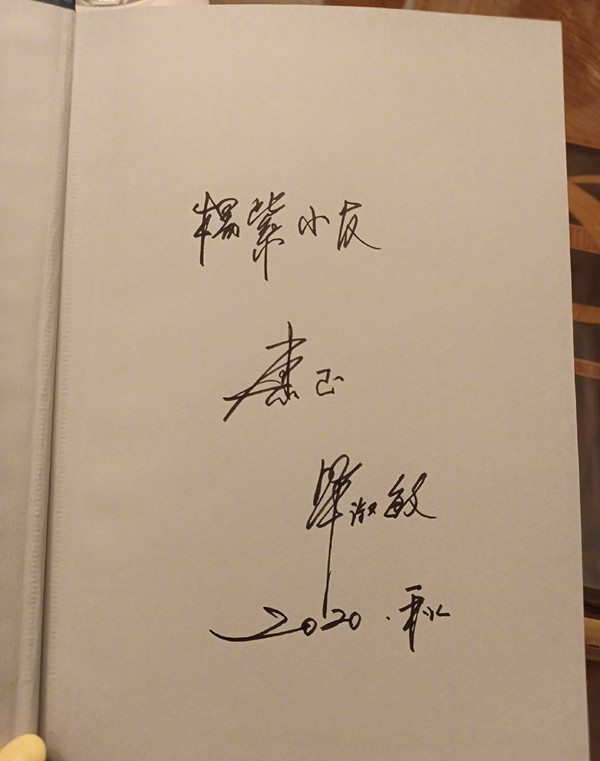 杨紫小友
惠正
毕淑敏
2020.秋